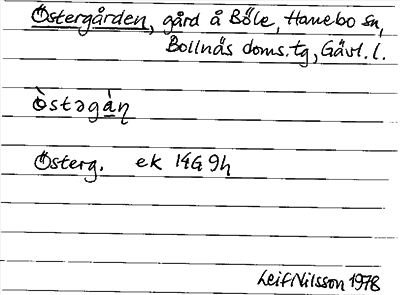 Östergården, gård å Böle, Hanebo sn,
Bollnäs doms. tg, Gävl. l.
ò̈stəgàṇ
Österg. ek 14G 9h
Leif Nilsson 1978